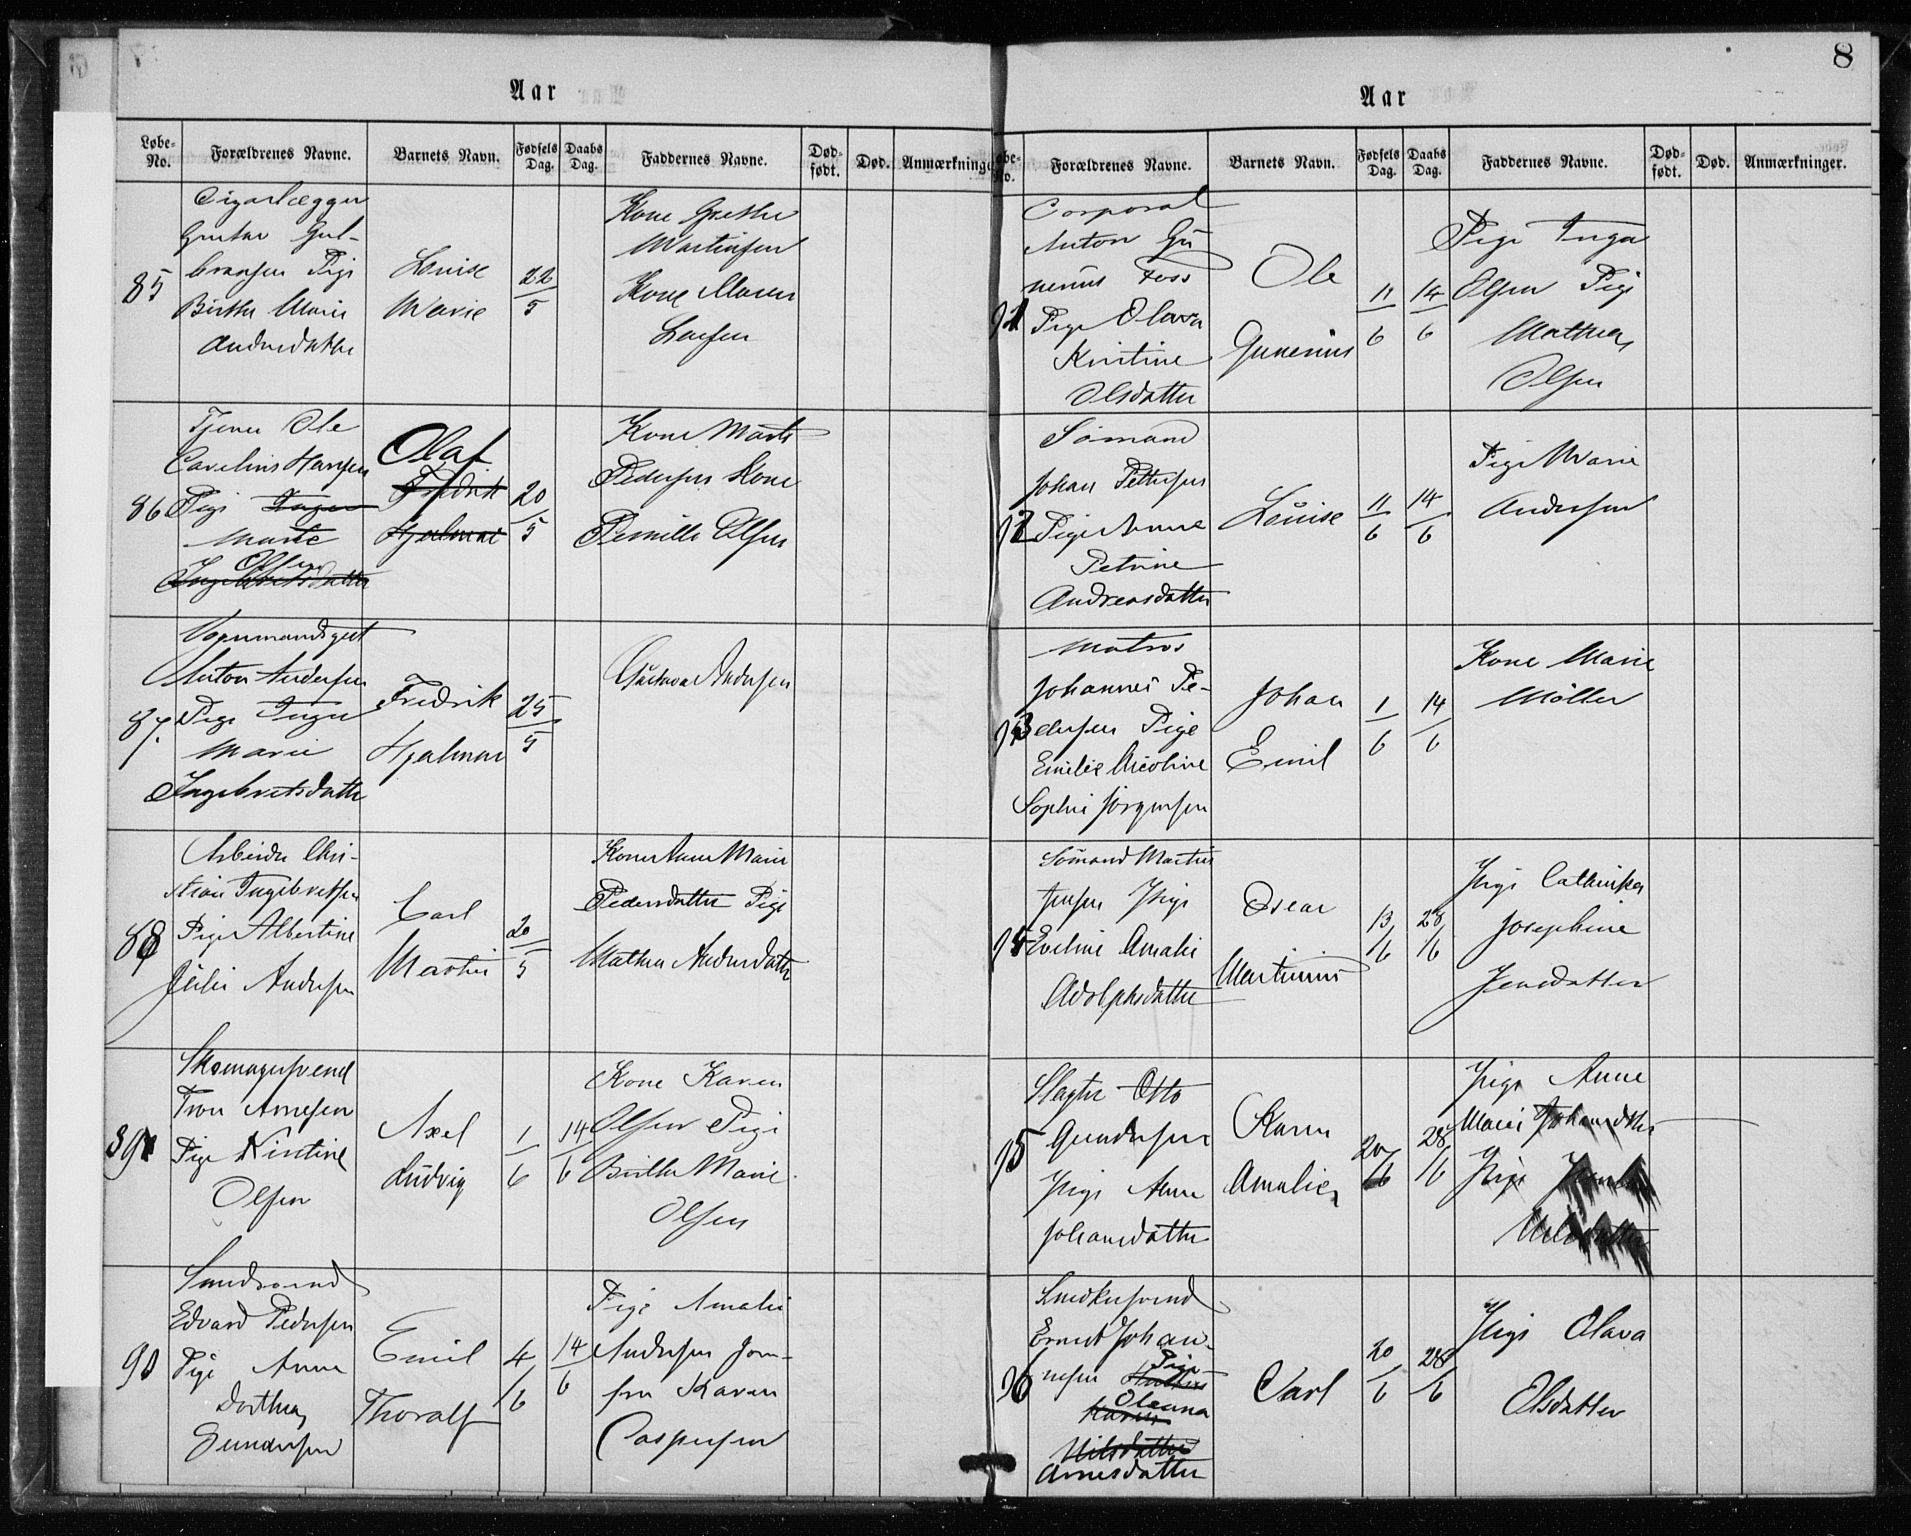 8
Aar
Løbe-No. Forældrenes Navne. Barnets Navn. Fødsels Dag. Daabs Dag. Faddernes Navne. Død-født. Død. Anmærkninge
85
Cigarlægger
Gustav Gul-
bransen Pige
Birthe Marie
Andersdatter
Louise
Marie
22/5
Kone Grethe
Martinsen
Kone Maren
Larsen
86
Tjener Ole
Carelius Hansen
Pige Inger
Marie
Olsen
Ingebretsdatter
Olaf
Fredrik
Hjalmar
20/5
Kone Marte
Pedersen Kone
Pernille Olsen
87
Vognmandsgut
Anton Andersen
Pige Inger
Marie
Ingebretsdatter
Fredrik
Hjalmar
25/5
Gustava Andersen
88
Arbeider Chri-
stian Ingebretsen
Pige Albertine
Julie Andersen
Carl
Martin
20/5
Kone Anne Marie
Pedersdatter Pige
Mathea Andersdatter
89
Skomagersvend
Iver Arnesen
Pige Kirstine
Olsen
Axel
Ludvig
1/6
14/6
Kone Karen
Olsen Pige
Birthe Marie
Olsen
90
Edvard Pedersen
Pige Anne
Dorthea
Gundersen
Emil
Thoralf
4/6
14/6
Pige Amalie
Andersen Jom-
fru Karen
Caspersen
Aar
Løbe-No. Forældrenes Navne. Barnets Navn. Fødsels Dag. Daabs Dag. Faddernes Navne. Død-født. Død. Anmærkninger.
91
Corporal
Anton Gu-
nerius Foss
Pige Olava
Kirstine
Olsdatter
Ole
Gunerius
11/6
14/6
Pige Inga
Olsen Pige
Mathea
Olsen
92
Sømand
Johan Pettersen
Pige Anne
Petrine
Andreasdatter
Louise
11/6
14/6
Pige Marie
Andersen
93
Matros
Johannes Pe-
dersen Pige
Emilie Nicoline
Sophie Jørgensen
Johan
Emil
1/6
14/6
Kone Marie
Møller
94
Sømand Martin
Jensen Pige
Eveline Amalie
Adolphsdatter
Oscar
Martinius
13/6
28/6
Pige Cathinka
Josephine
Jensdatter
95
Slagter Otto
Gundersen
Pige Anne
Johansdatter
Karen
Amalie
20/6
28/6
Pige Anne
Marie Johansdatter
Pige
Nilsdatter
96
Snedkersvend
Ernst Johan-
nesen Pige
Oleanna
Karen
Nilsdatter
Arnesdatter
Carl
20/6
28/6
Pige Olava
Olsdatter